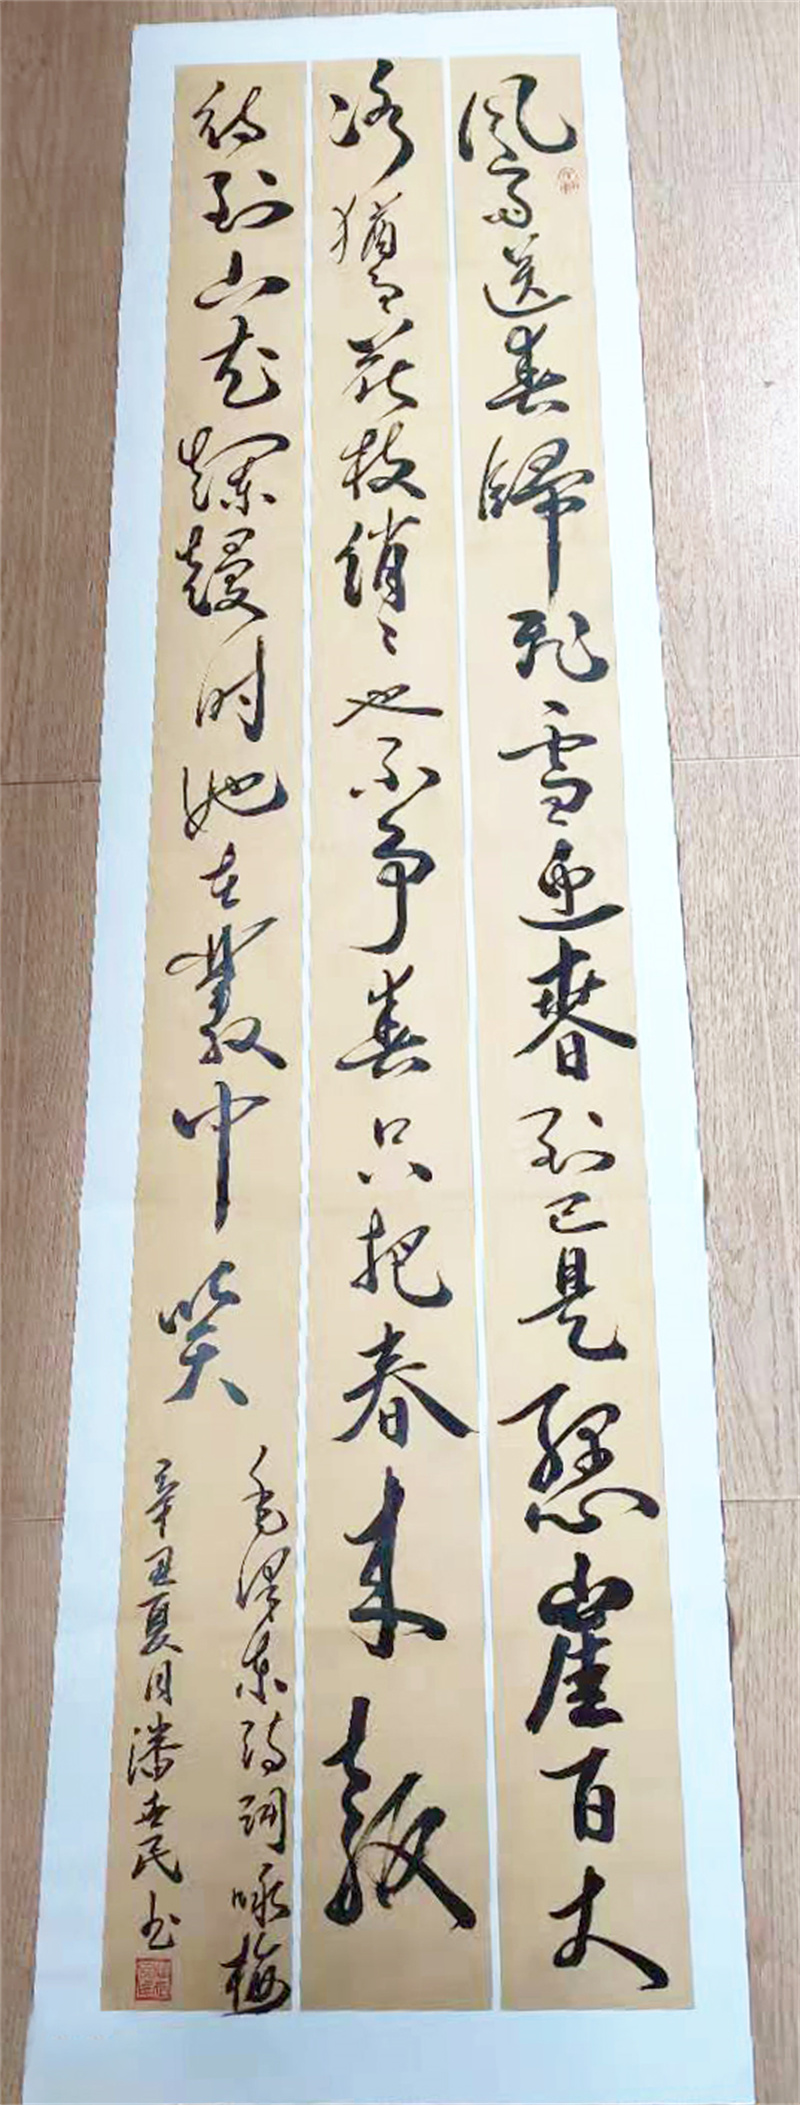 风雨送春歸飛雪迎春到已是懸崖百丈
冰猶有花枝俏〻也不争春只把春来報
待到山花爛熳时她在叢中笑
毛泽东诗词咏梅
辛丑夏月潘世民书